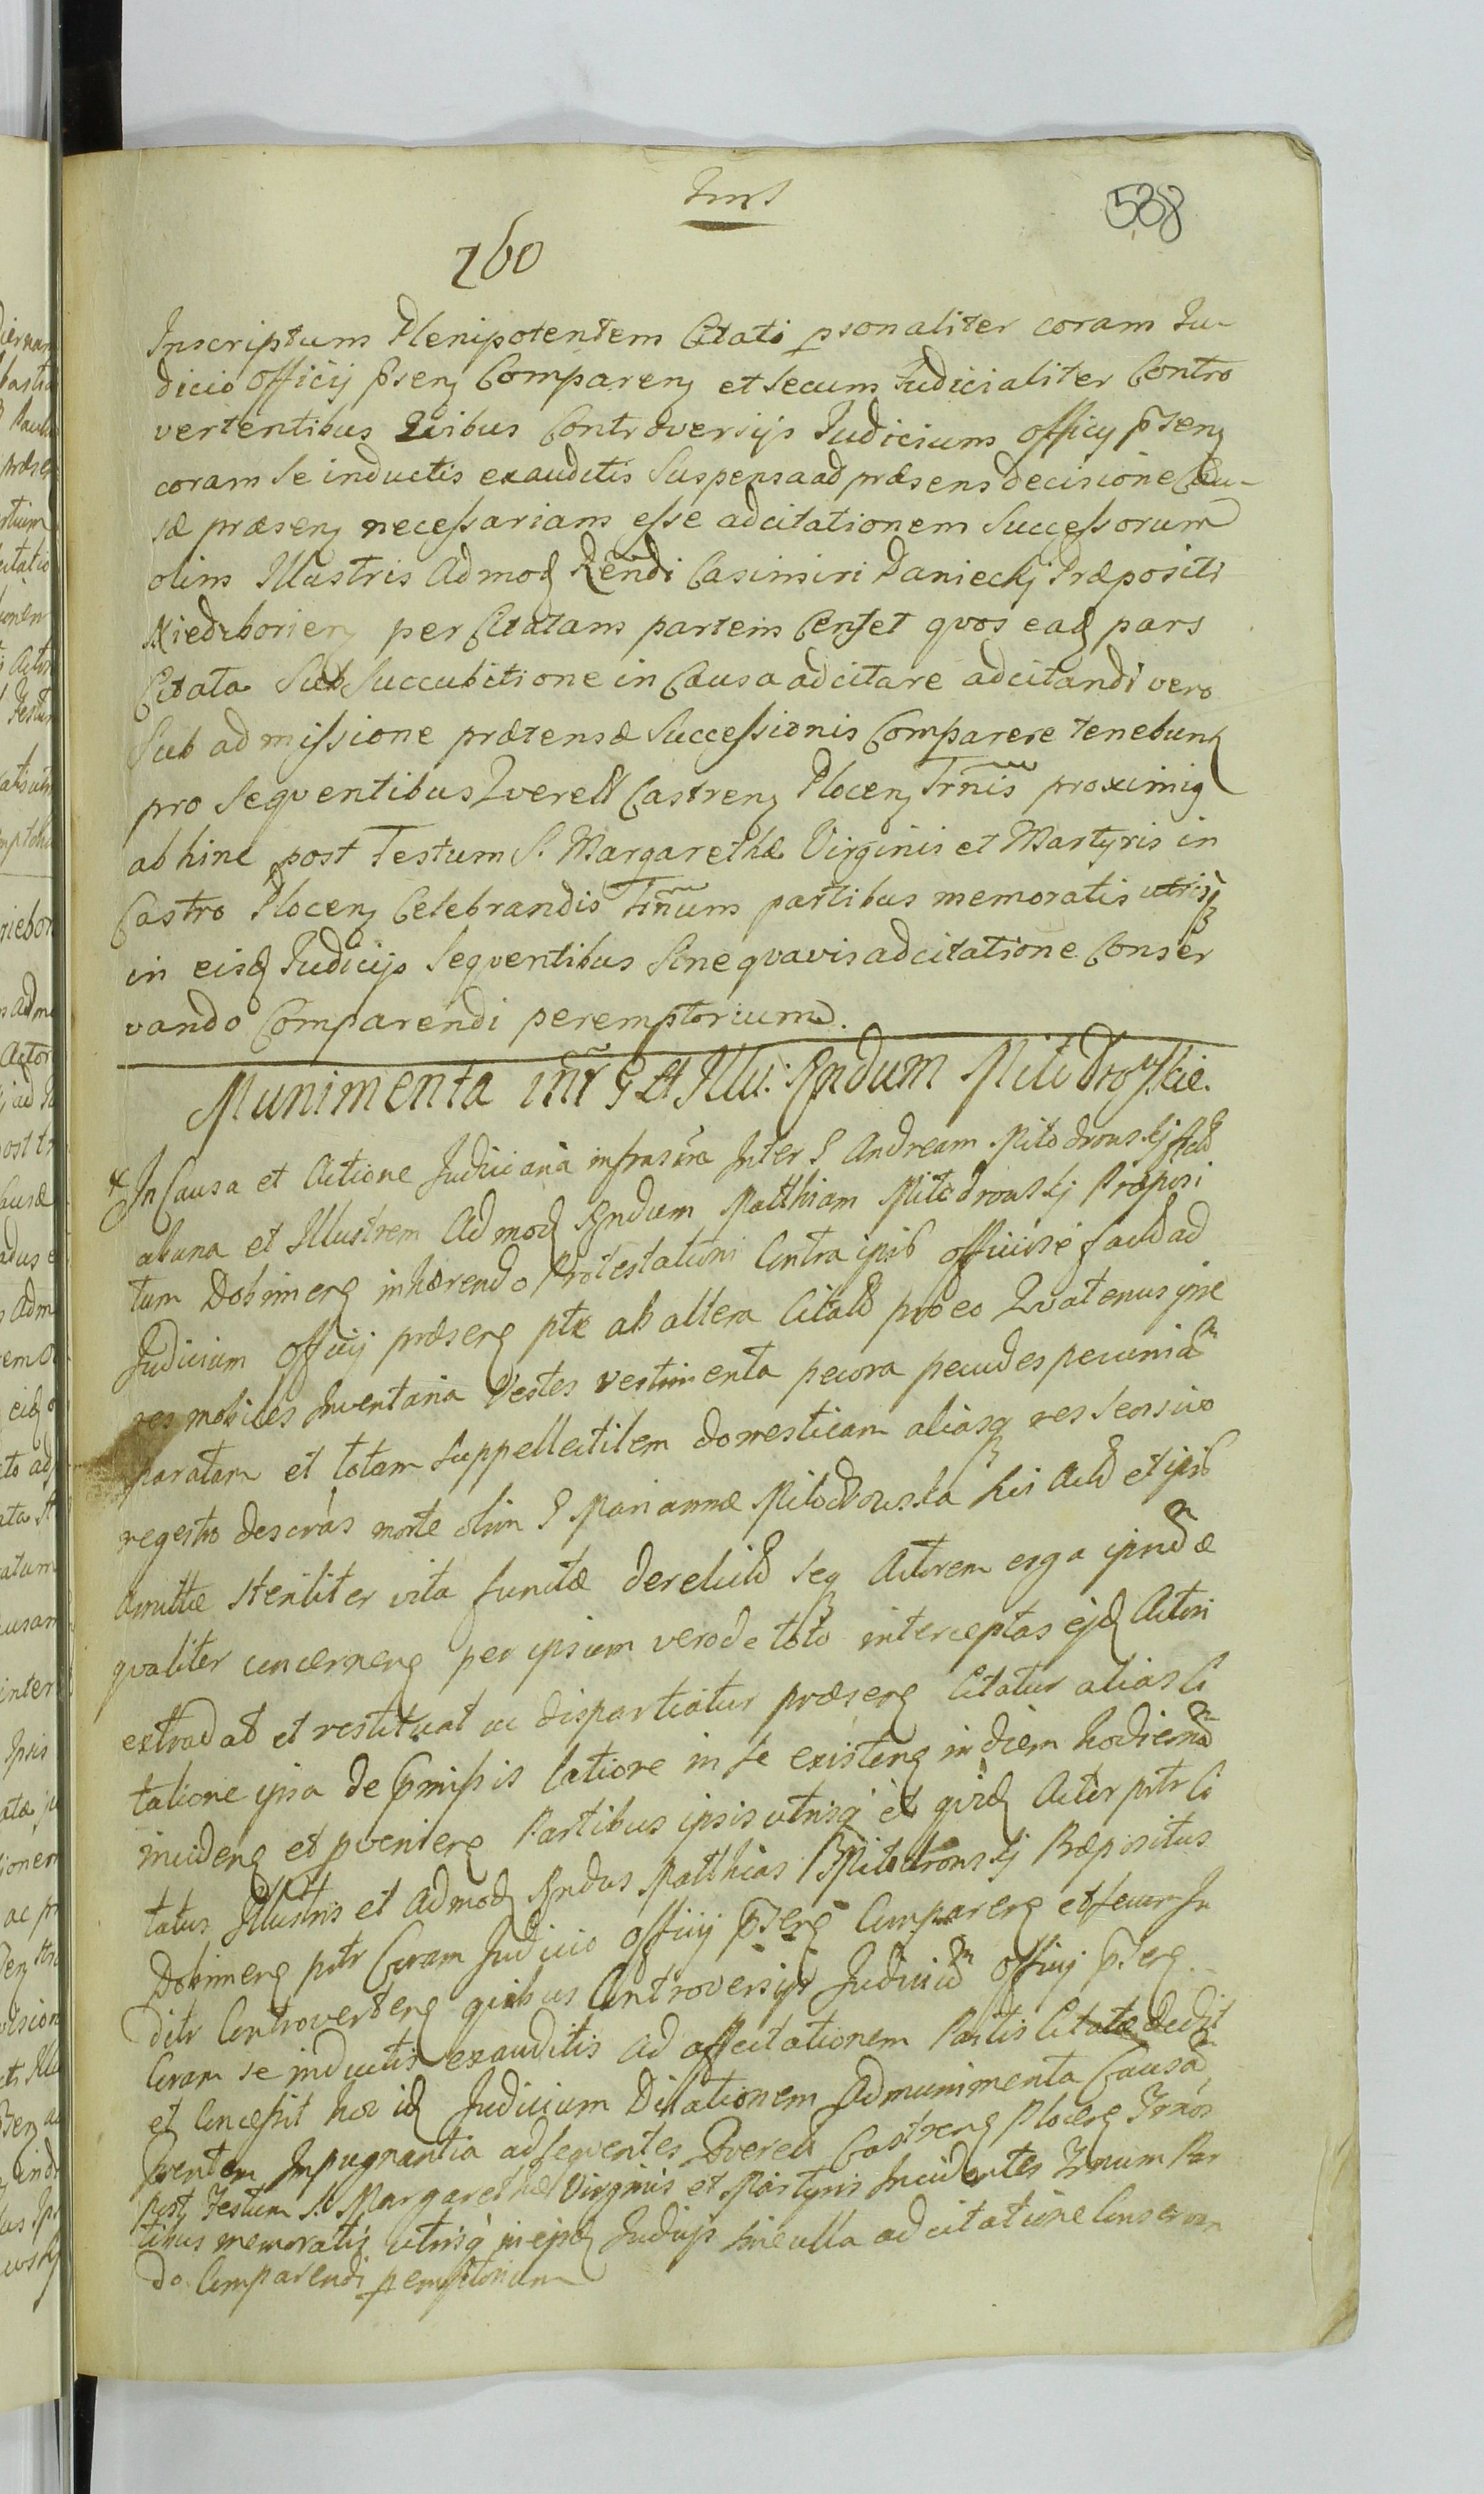 538
760
Inscriptum Plenipotentem Citati psonaliter coram Ju-
dicio Officij Psenz Comparenz et secum Judicialiter Contro
vertentibus Qvibus Controversijs Judicium Officij Psenz
coram se inductis exauditis Suspensa ad præsens decisione Cau-
sæ præsenz necessariam esse adcitationem Successorum
olim Illustris Admod Rendi Casimiri Danieckj Præpositi
per Citatam partem Censet qvos ead pars
Citata Sub Succubitione in Causa adcitare adcitandi vero
Sub admissione prætensæ Successionis Comparere tenebunt
pro Seqventibus Qverell Castrenz Plocenz Trnis proximis
abhinc post Festum S. Margarethæ Virginis et Martyris in
Castro Plocenz Celebrandis Trnum partibus memoratis utrisq
in eisd Judicijs Seqventibus Sine qvavis adcitatione Conser
vando Comparendi peremptorium.
Munimenta intr G et Illu: Rndum Milodroskie.
In Causa et Actione Judiciaria infrascra Inter G Andream Milodrouskj Actd
ab una et Illustrem Admod Rndum Matthiam Milodrouskj Præposi
tum inhærendo Protestationi Contra ipsum officiose factd ad
Judicium Officij præsens pte ab altera Citatd pro eo Qvatenus ipse
res mobiles Inventaria Vestes vestimenta pecora pecudes pecuniam
paratam et totam Suppellectilem domesticam aliasq res seorsivo
regestro descrás morte olim G Mariannæ Milodrouska his Actd et ipsd
Amittæ steriliter vita functæ derelictd seq Actorem erga ipsud æ
qvaliter concernens per ipsum vero de toto interceptas ejd Actori
extradat et restituat ac dispartiatur præsens Citatur alias Ci
tatione ipsa de Præmissis latiore in se existens in diem hodiernam
incidens et pveniens Partibus ipsis utrisq et qvid Actor pntr Ci
tatus Illustris et Admod Rndus Matthias Milodrouskj Præpositus
pntr Coram Judicio Officij Psens Comparens et secum Ju
ditr Controvertens qvibus Controversijs Judicium Officij Psens
Coram se inductis exauditis ad affectationem Partis Citatæ Dedit
et Concessit hoc id Judicium Dilationem Ad munimenta Causam
Pventem Impugnantia ad seqventes Qverell Castrens Plocens Trnos
Post Festum S. Margarethæ Virginis et Martyris Incidentes Trnum Par
tibus memoratis utrisq in ejsd Judicijs sine ulla adcitatione Conservan
do Comparendi pemptorium